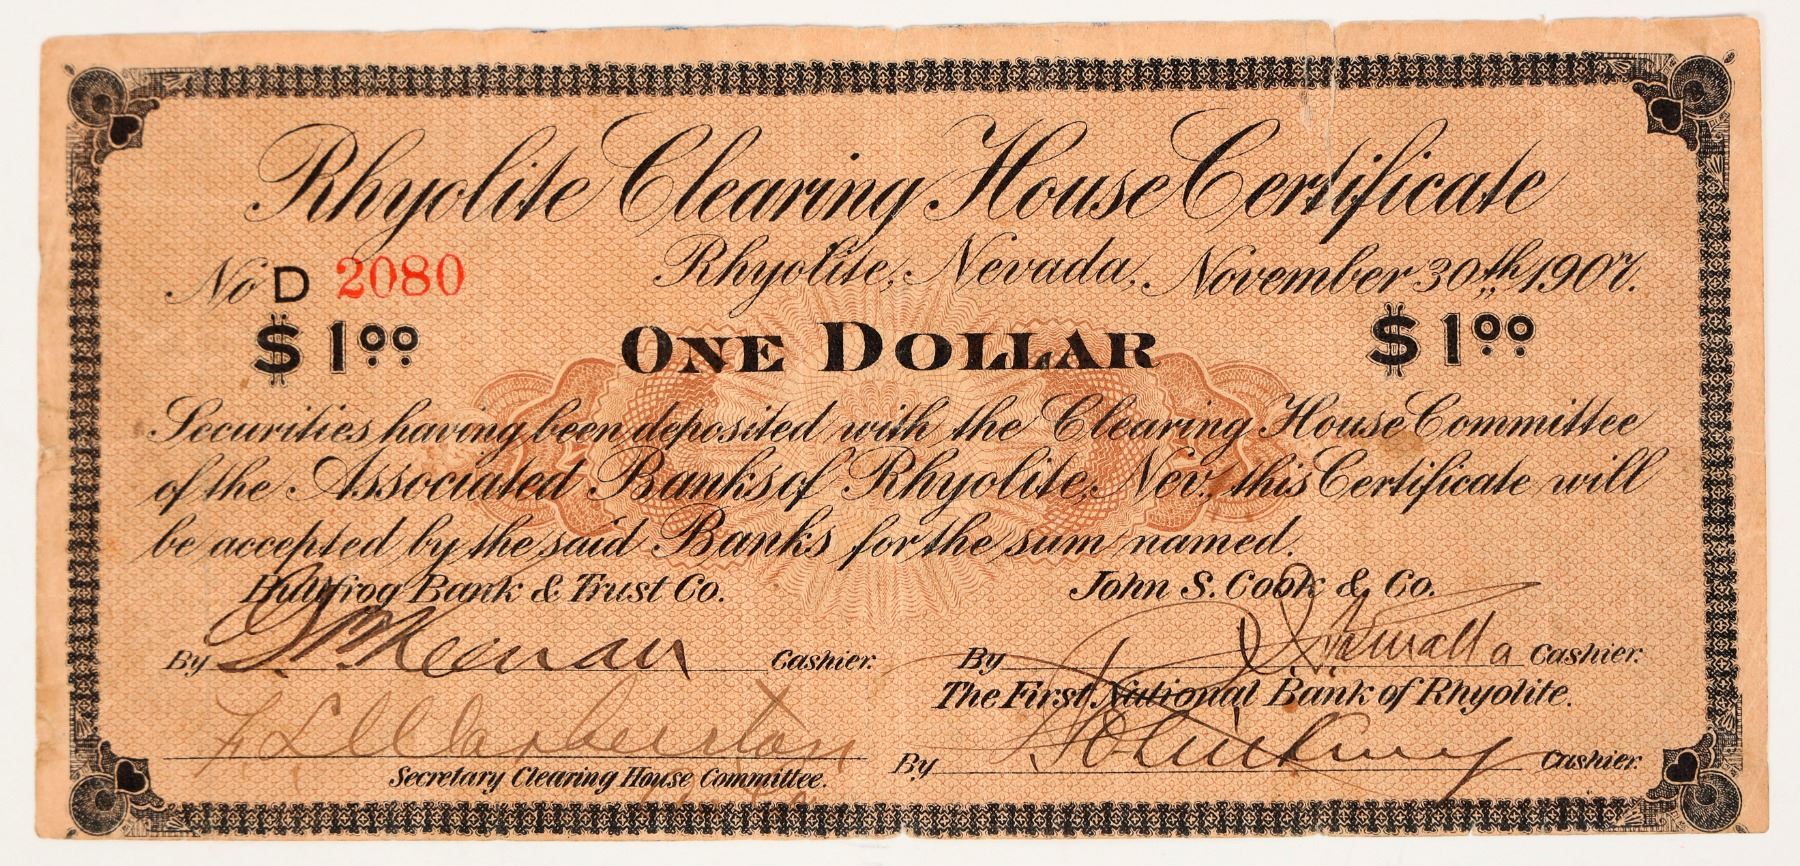 Rhyolite Clearing House Certificate
No D 2080
Rhyolite, Nevada, November 30th 1907.
$1.00
ONE DOLLAR
$1.00
Securities having been deposited with the Clearing House Committee
of the Associated Banks of Rhyolite, Nev., this Certificate will
be accepted by the said Banks for the sum named.
Bullfrog Bank & Trust Co.
John S. Cook & Co.
By Cashier.
By Cashier.
The First National Bank of Rhyolite.
Secretary Clearing House Committee.
By Cashier.